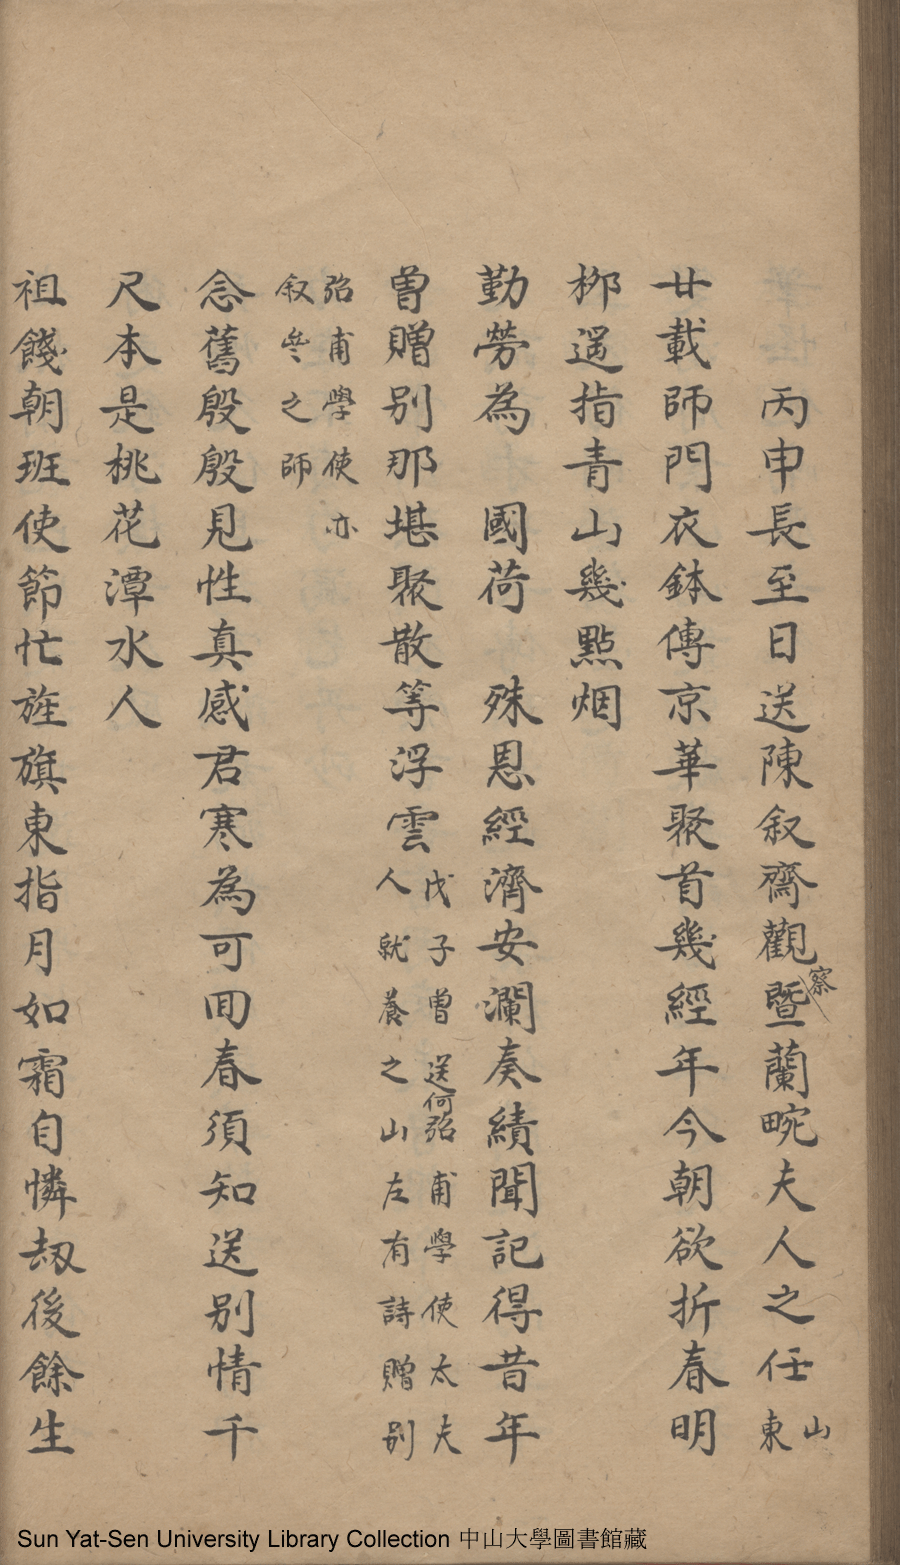 丙申長至日送陳叙齋觀察暨蘭畹夫人之任山東
廿載師門衣鉢傳京華聚首幾經年今朝欲折春明
柳遥指青山幾點烟
勤勞為 國荷 殊恩經濟安瀾奏績聞記得昔年
曾贈别那堪聚散等浮雲戊子曾送何弨甫學使太夫人就養之山左有詩贈别
弨甫學使亦叙�Pending之師
念舊殷殷見性真感君寒為可回春須知送别情千
尺本是桃花潭水人
祖餞朝班使節忙旌旗東指月如霜自憐劫後餘生
Sun Yat-Sen University Library Collection 中山大學圖書館藏